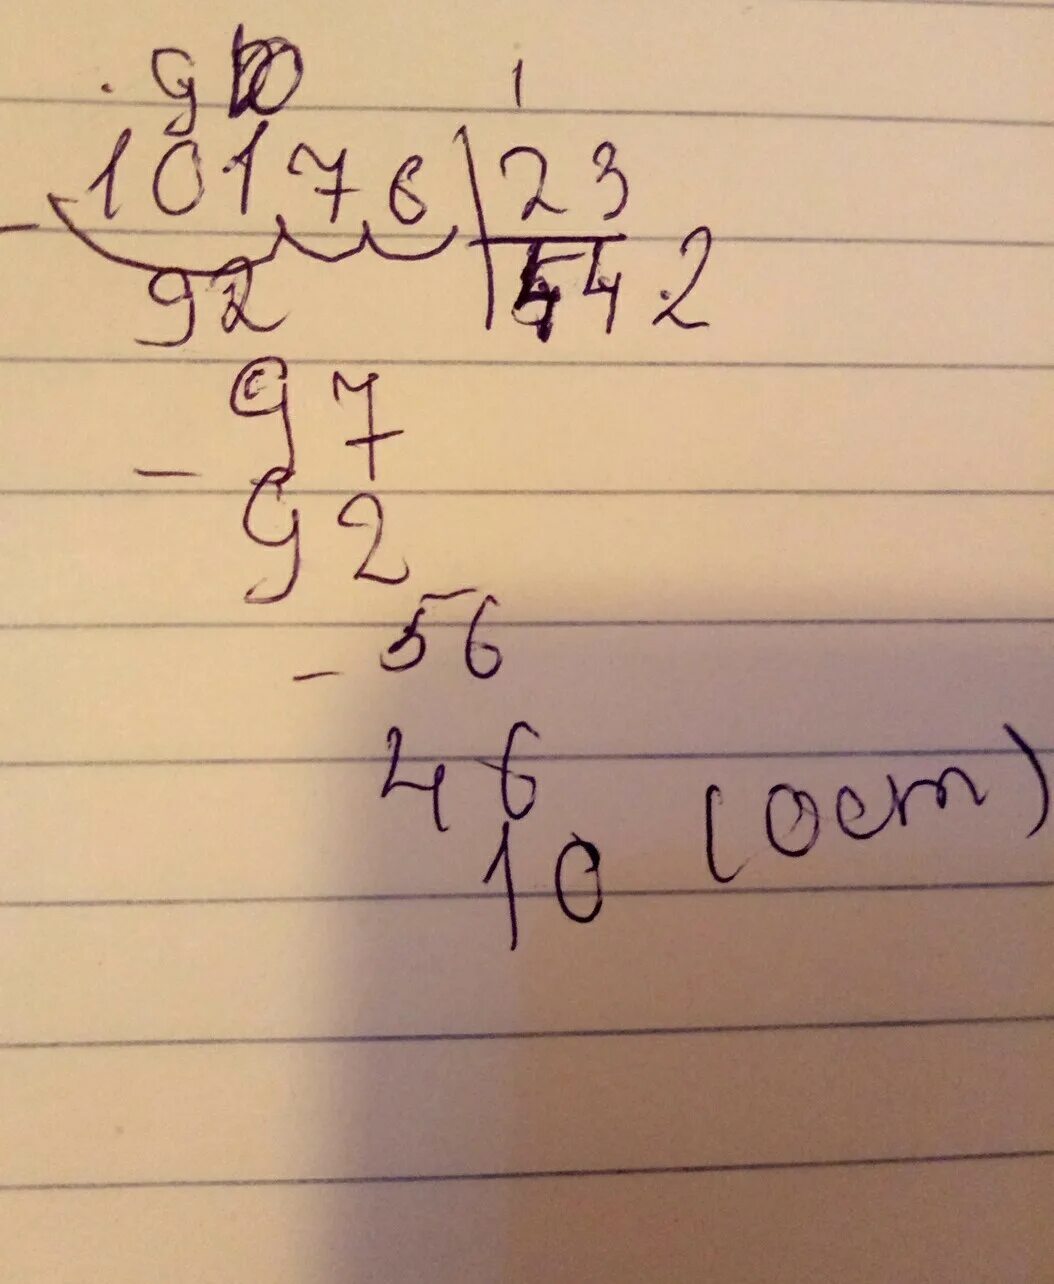 9 10 1
10176 23
- 92 442
97
- 92
- 56
46
10 (ост)